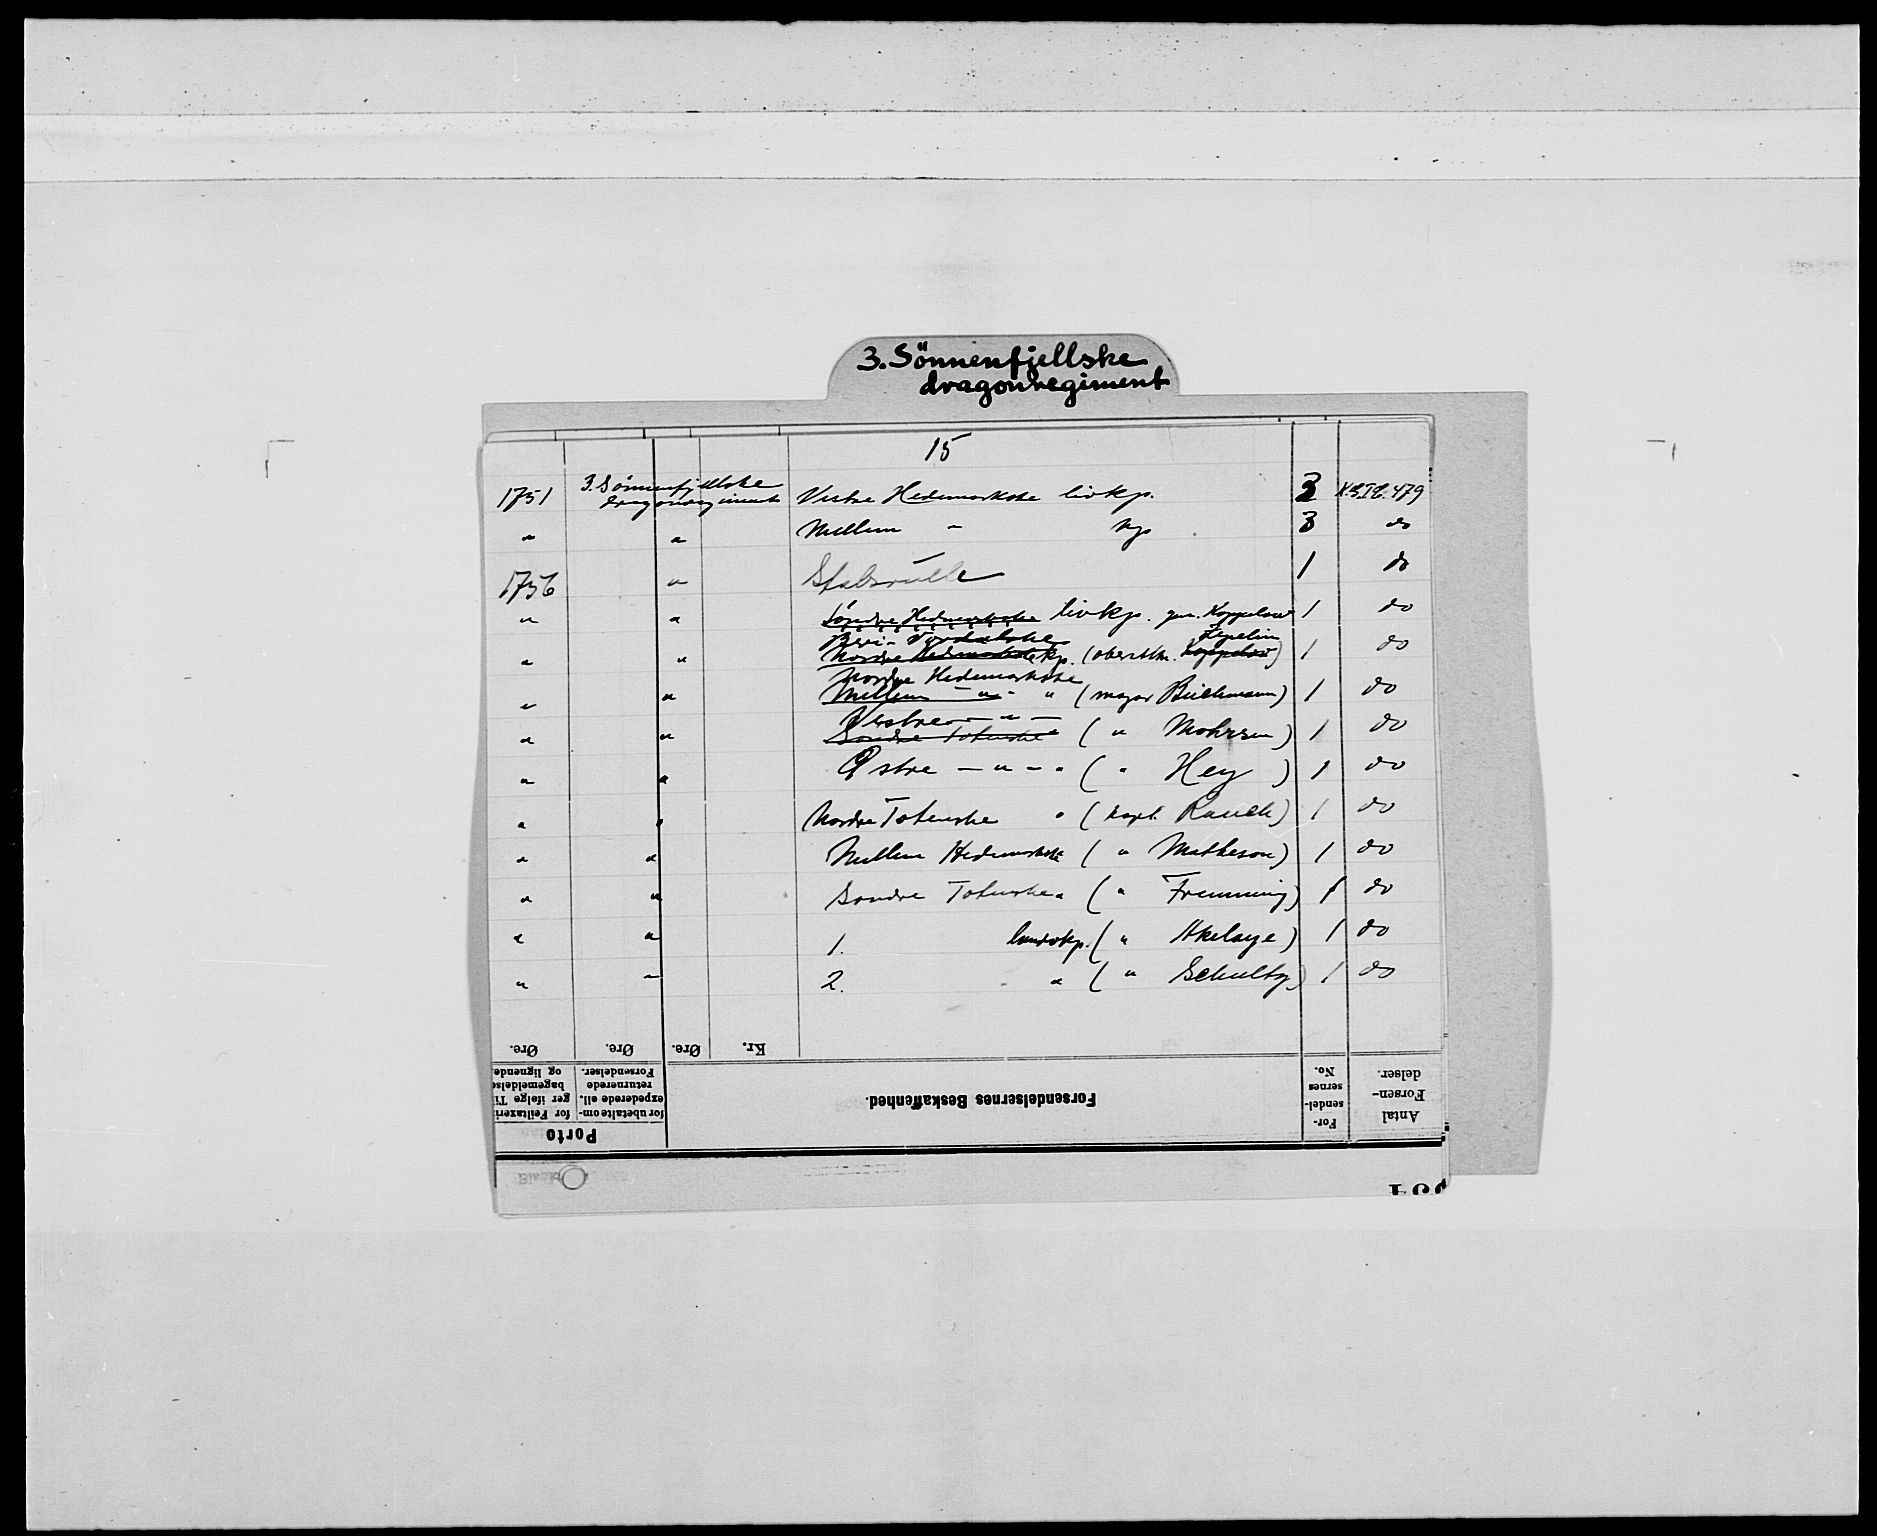 3. Sönnenfjellske
dragonregiment
15
1751 3. Sönnenfjellske dragonregiment Vestre Hedemarkske livkp. 3 K.G.I.C. 479
" " Mellem - kp 3 do
1756 " Stabsrulle 1 do
" " Söndre Hedemarkske livkp. gen. Koppelow 1 do
Beri- Vardalske Zepelin
" " Nordre Hedemarkske kp. (oberstltn. Koppelow) 1 do
Nordre Hedemarkske
" " Mellem - " - " (major Büchmann) 1 do
Vestre - " -
" " Søndre Totenske ( " Mohrsen) 1 do
" " Østre - " - " ( " Hey ) 1 do
" " Nordre Totenske " (kapt. Rauch) 1 do
" " Mellem Hedemarkske ( " Matheson) 1 do
" " Søndre Totenske " ( " Fremming) 1 do
" " 1. landvkp. ( " Akelaye) 1 do
" " 2. " ( " Schultz) 1 do
Øre. Øre. Øre. Kr.
Porto
for Feiltaxeringer ifølge Tilbagemeldelse og lignende.
for ubetalte omexpederede ell. returnerede Forsendelser.
Forsendelsernes Beskaffenhed.
Forsendelsernes No.
Antal Forsendelser.